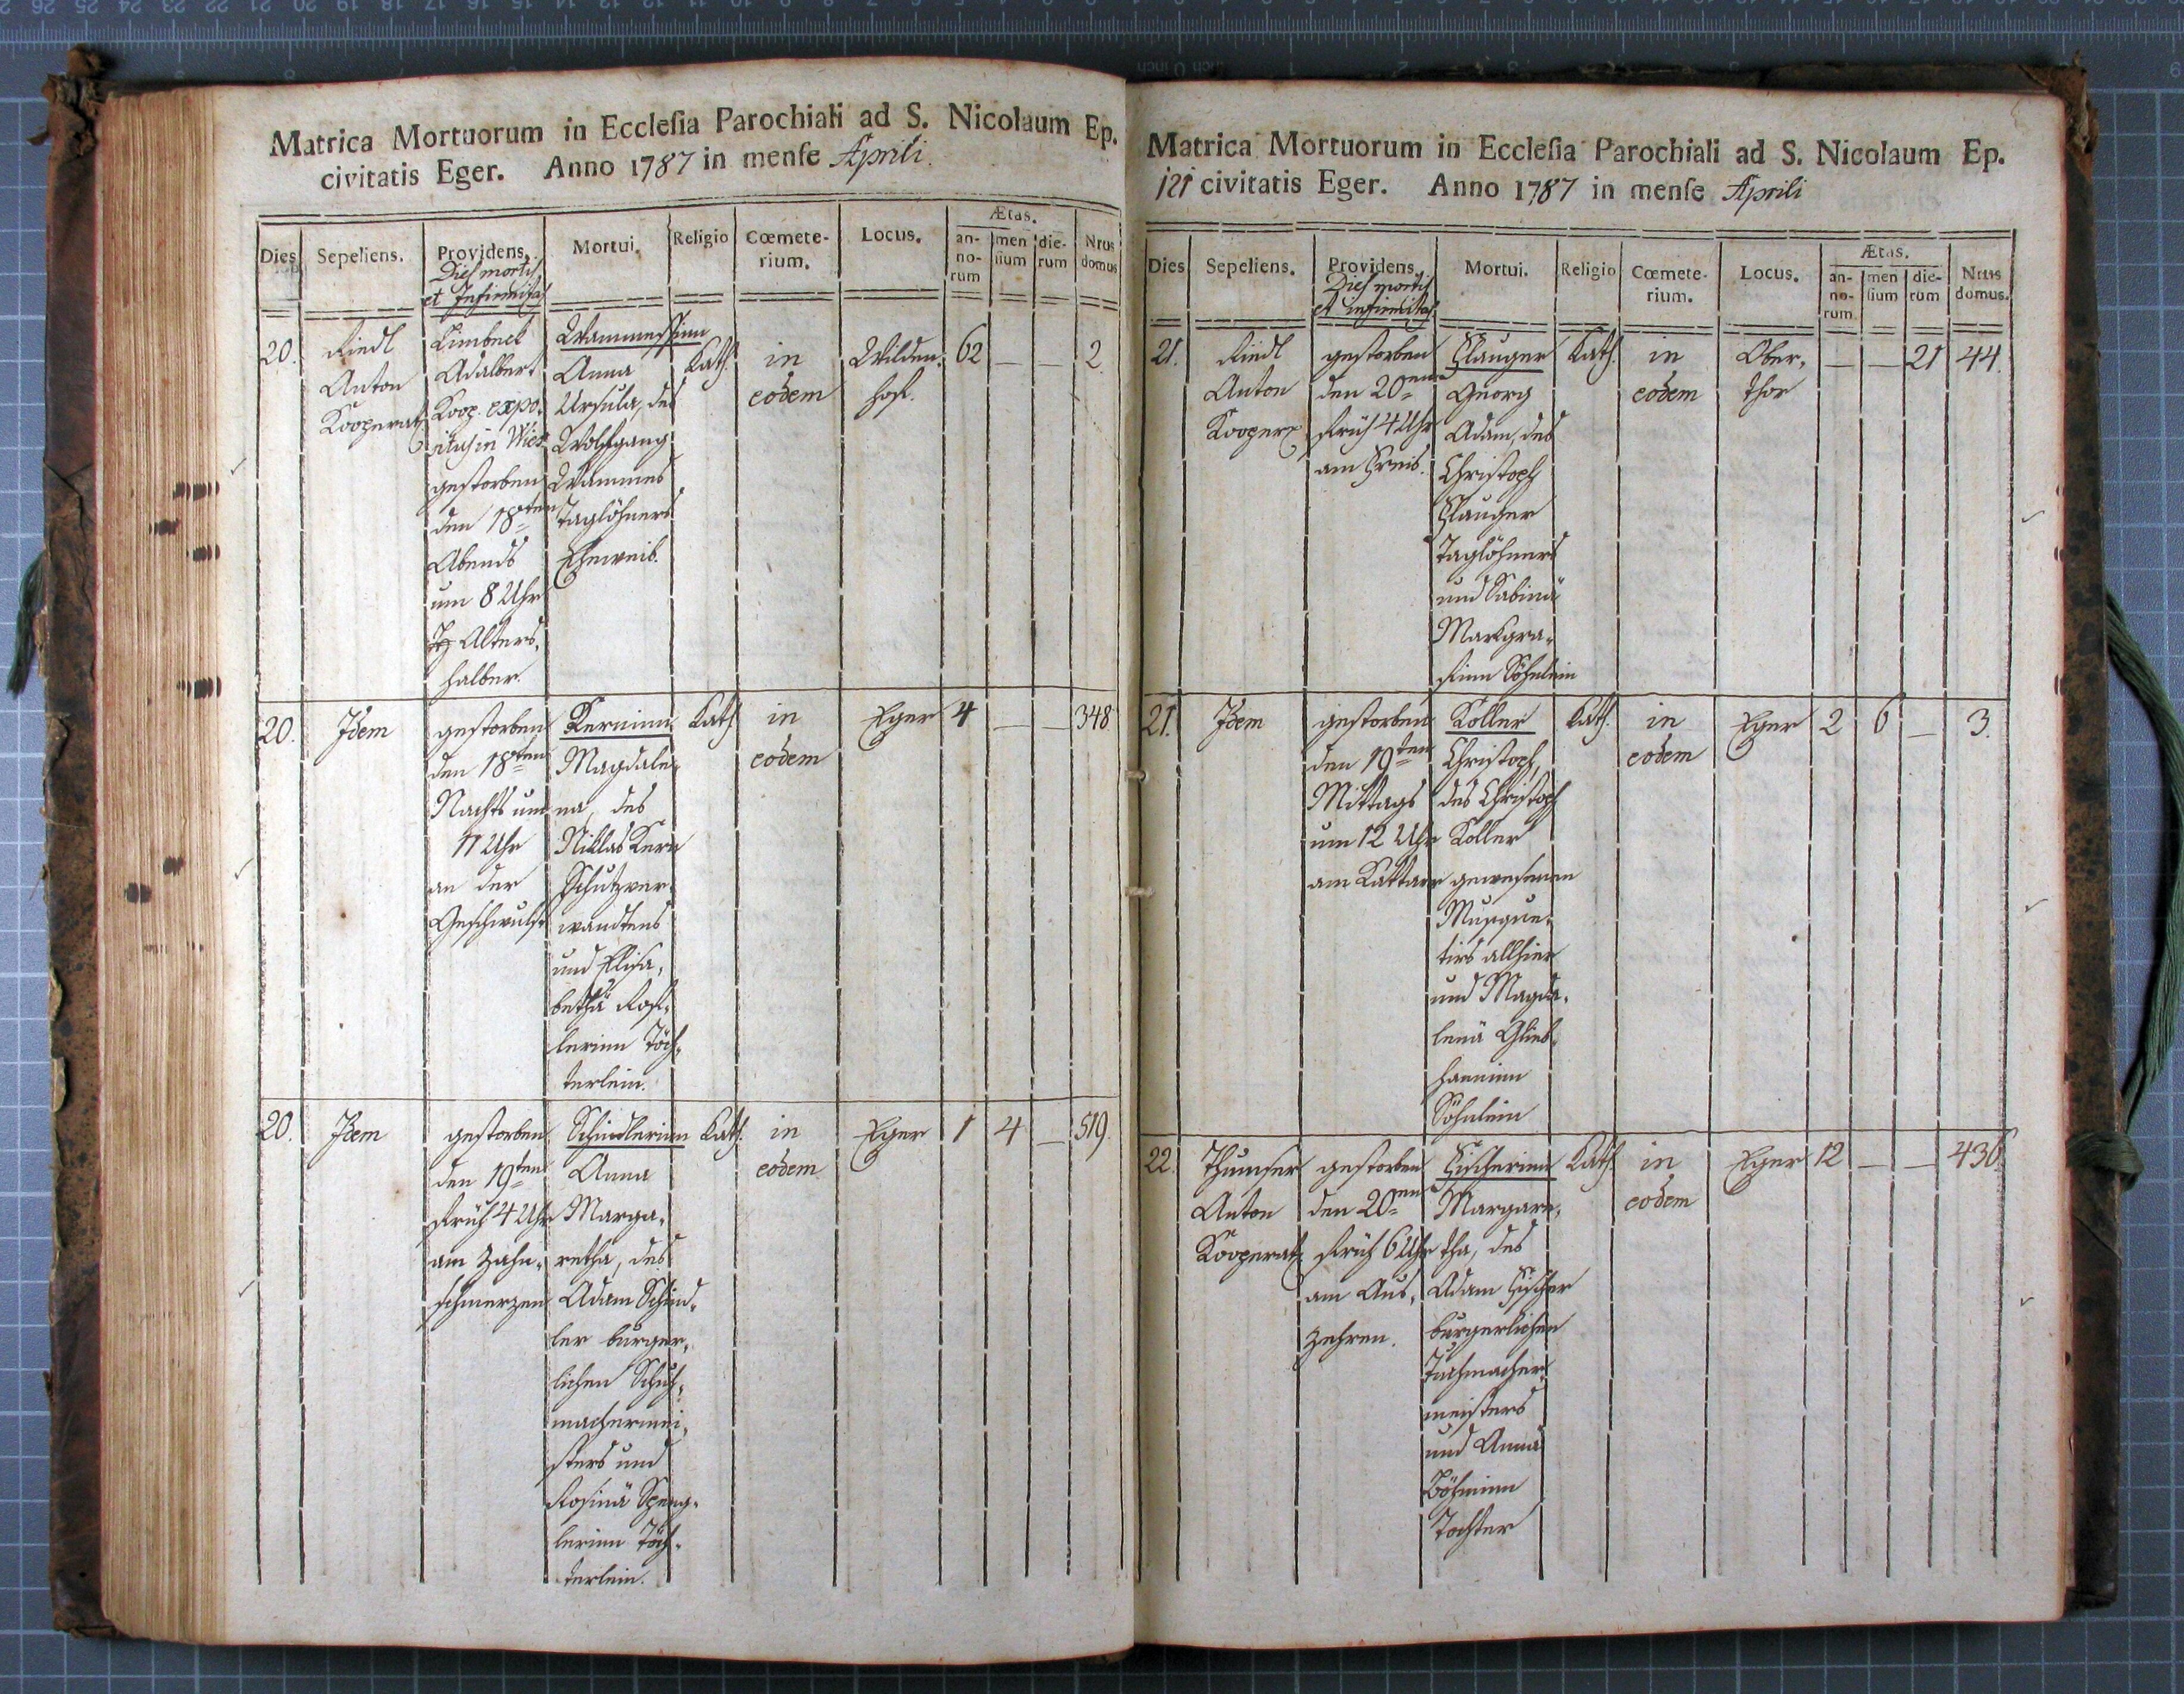 Matrica Mortuorum in Ecclesia Parochiali ad S. Nicolaum Ep.
civitatis Eger. Anno 1787 in mense Aprili.
Dies
Sepeliens.
Providens.
Dies mortis
et Infirmitas
Mortui.
Religio
Cœmeterium.
Locus.
Ætas.
annorum
mensium
dierum
Nrus domus
20.
Riedl
Anton
Kooperat.
Adalbert
Koop. expo-
situs in Wies
gestorben
den 18ten
Abends
um 8 Uhr
Alters-
halber.
Wammessin
Anna
Ursula, des
Wolfgang
Wammes
Taglöhners
Eheweib.
Kath.
in
eodem
Wilden-
hof.
62
—
—
2.
20.
Idem
gestorben
den 18ten
Nachts um
11 Uhr
an der
Geschwulst
Kerninn
Magdale-
na, des
Niklas Kern
Schutzver-
wandtens
und Elisa-
bethä
lerinn Töch-
terlein.
Kath.
in
eodem
Eger
4
—
—
348
20.
Idem
gestorben
den 19ten
Früh 4 Uhr
am Zahn-
schmerzen
Schindlerinn
Anna
Marga-
retha, des
Adam Schind-
ler bürger-
lichen Schuh-
machermei-
sters und
Rosinä Speng-
lerinn Töch-
terlein.
Kath.
in
eodem
Eger
1
4
—
519.
Matrica Mortuorum in Ecclesia Parochiali ad S. Nicolaum Ep.
121 civitatis Eger. Anno 1787 in mense Aprili
Dies
Sepeliens.
Providens.
Dies mortis
et infirmitas
Mortui.
Religio
Cœmeterium.
Locus.
Ætas.
annorum
mensium
dierum
Nrus domus.
21.
Riedl
Anton
Kooper.
gestorben
den 20ten
Früh 4 Uhr
am Freis.
Georg
Adam, des
Christoph
Taglöhners
und Sabinä
Markgra-
finn Söhnlein
Kath.
in
eodem
Ober-
thor
—
—
21
44.
21.
Idem
gestorben
den 19ten
Mittags
um 12 Uhr
am Kattarr
Koller
Christoph,
des Christoph
Koller
gewesenen
Musque-
tirs allhier
und Magda-
lenä
Söhnlein
Kath.
in
eodem
Eger
2
6
—
3.
22.
Thumser
Anton
Kooperat.
gestorben
den 20ten
Früh 6 Uhr
am Aus-
zehren.
Fischerinn
Margare-
tha, des
Adam Fischer
bürgerlichen
Tuchmacher-
meisters
und Annä
Böhminn
Tochter
Kath.
in
eodem
Eger
12
—
—
436